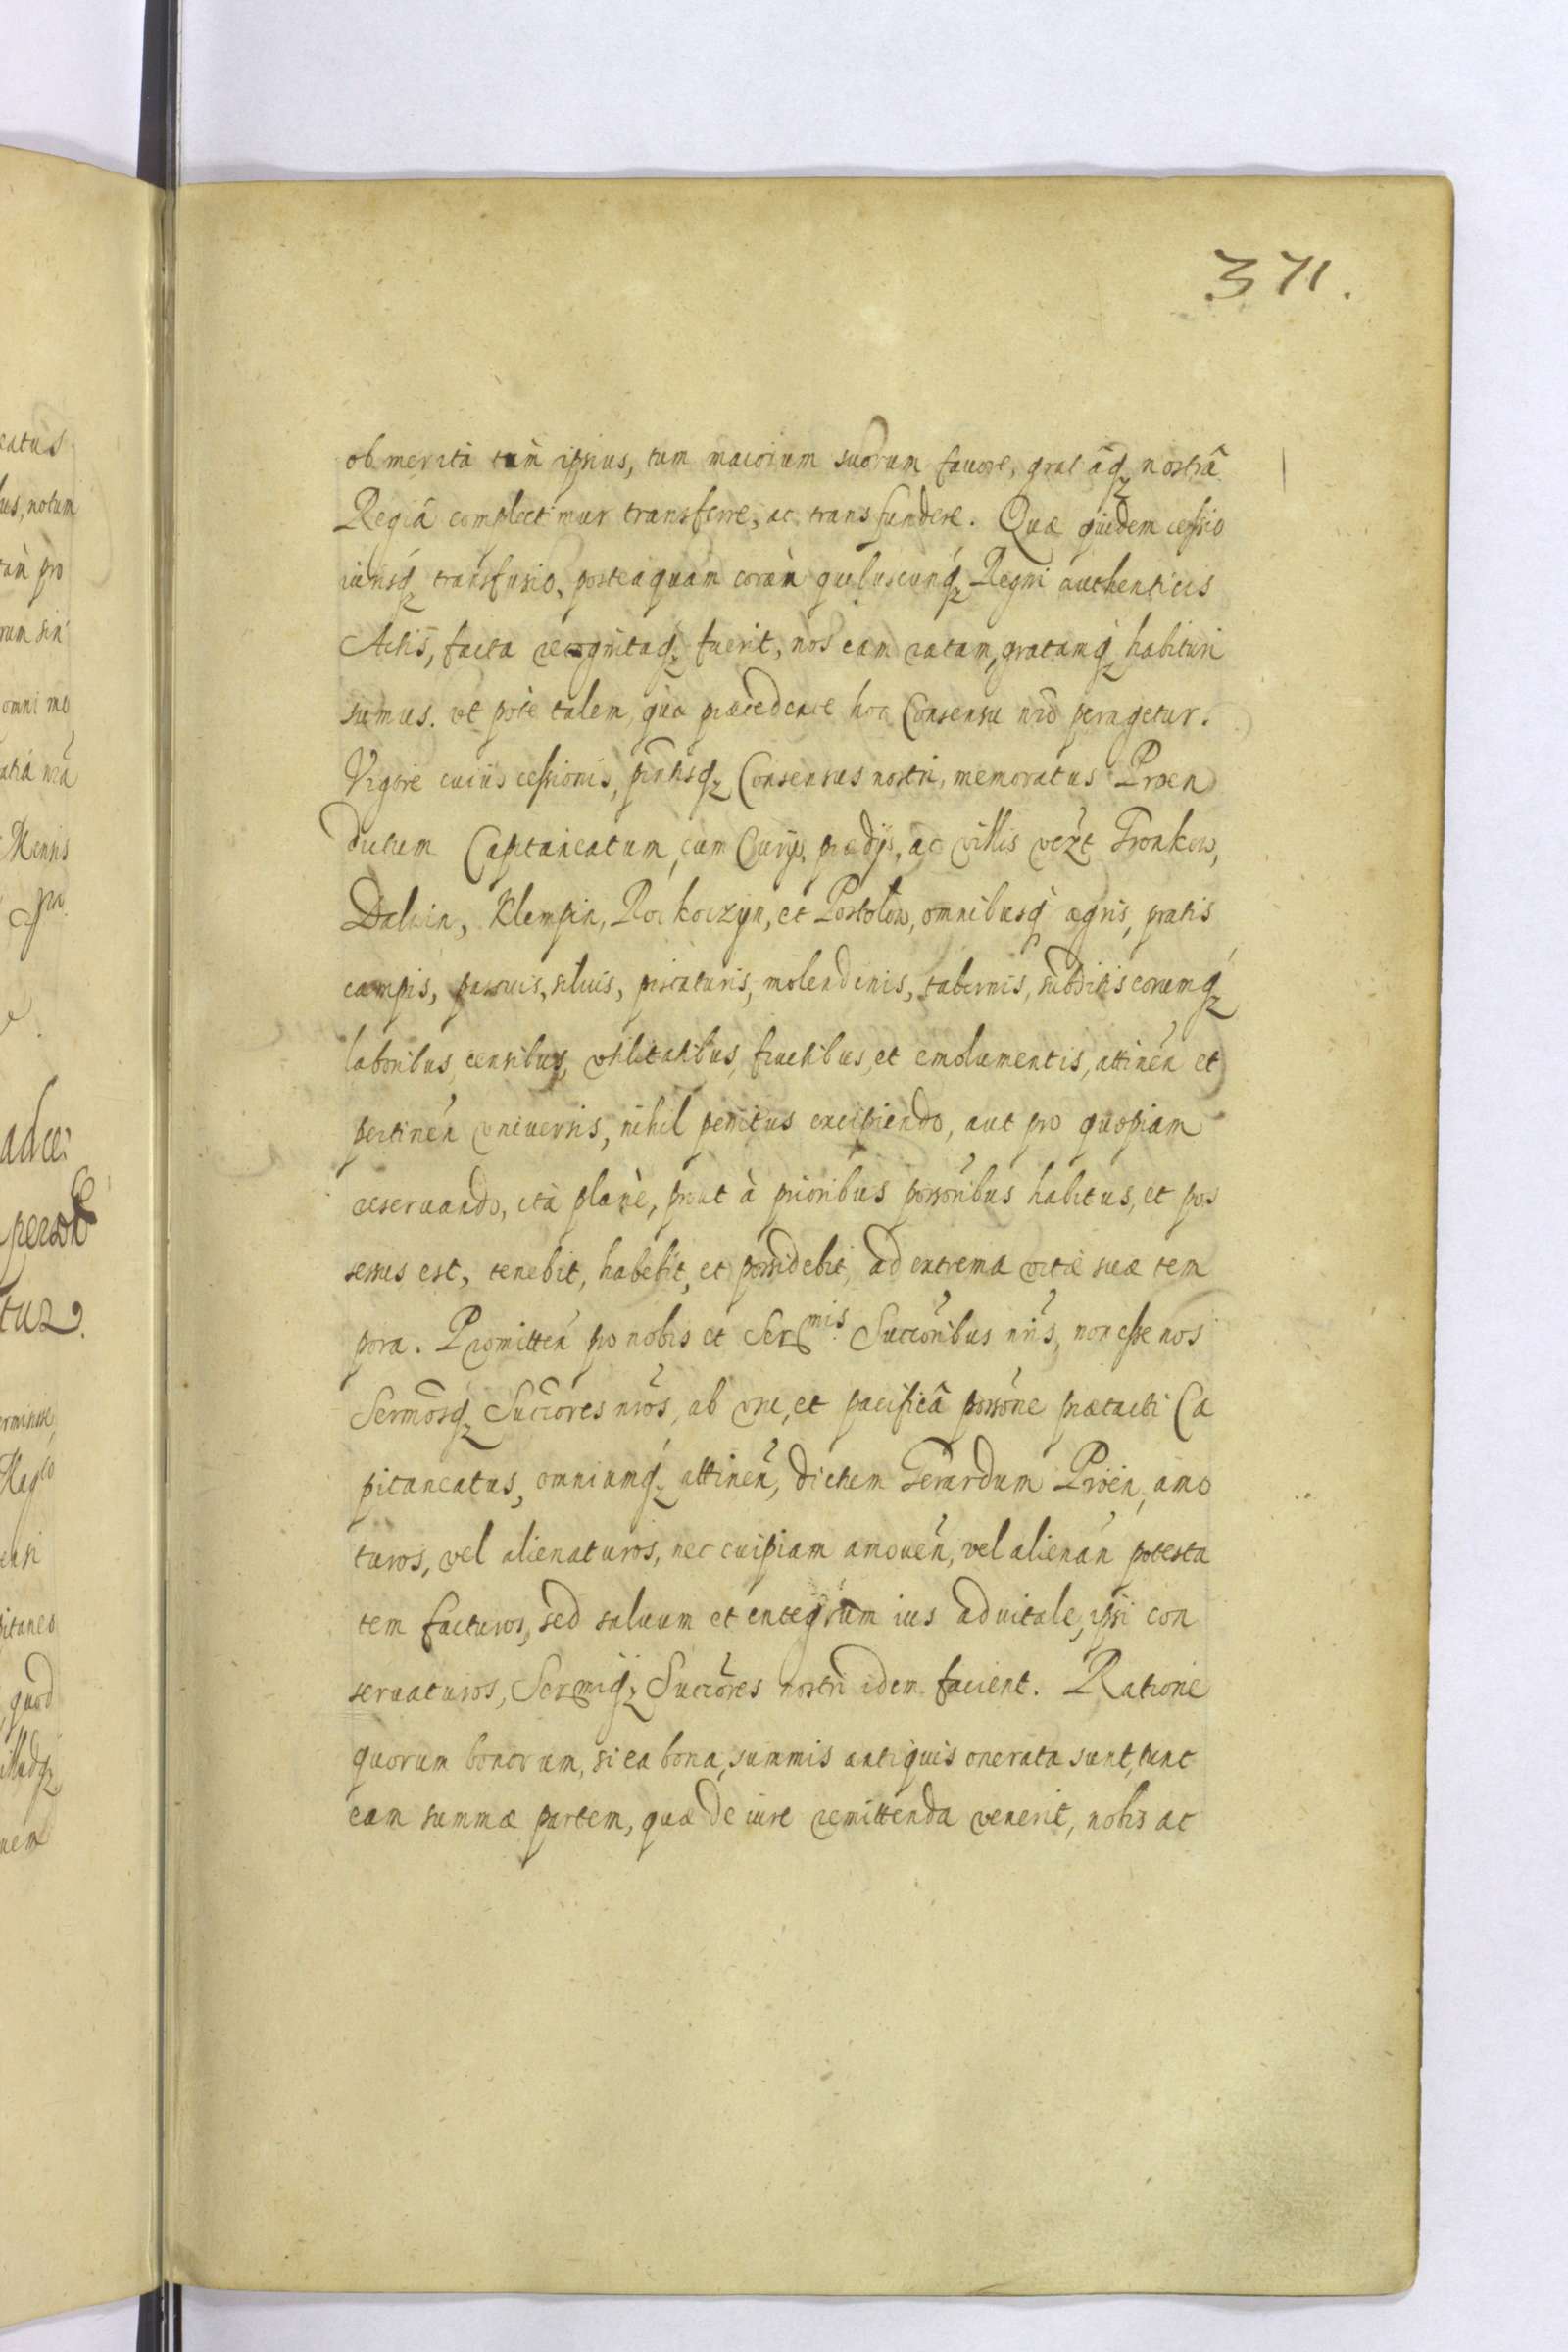 371.
ob merita tam ipsius, tum maiorum suorum fauore, gratâq nostrâ
Regiâ complectimur transferre, ac transfundere. Quæ quidem cessio
iurisq transfusio, posteaquam coràm quibuscunq Regni authenticis
Actis, facta recognitaq fuerit, nos eam ratam, gratamq habituri
sumus. ut pote talem, quæ præcedente hoc Consensu nrõ peragetur.
Vigore cuius cessionis, pñtisq Consensus nostri, memoratus Proen
dictum Capitaneatum, cum Curijs, prædijs, ac villis vczt Gronkow,
Dalwin, Klempin, Rokoczyn, et Postolow, omnibusq agris, pratis
campis, pascuis, siluis, piscaturis, molendinis, tabernis, subditis eorumq
laboribus, censibus, vtilitatibus, fructibus, et emolumentis, attinen et
pertinen vniuersis, nihil penitus excipiendo, aut pro quopiam
reseruando, ità planè, prout à prioribus possoribus habitus, et pos
sessus est, tenebit, habebit, et possidebit, ad extrema vitæ suæ tem
pora. Promitten pro nobis et Sermis Succoribus nris, non esse nos
Sermosq Succores nros, ab vsu, et pacificâ possone prætacti Ca
pitaneatus, omniumq attinen, dictum Gerardum Proen, amo
turos, vel alienaturos, nec cuipiam amouen, vel alienan potesta
tem facturos, sed saluum et integrum ius aduitale, ipsi con
seruaturos, Sermiq Succores nostri idem facient. Ratione
quorum bonorum, si ea bona, summis antiquis onerata sunt, tunc
eam summæ partem, quæ de iure remittenda venerit, nobis ac